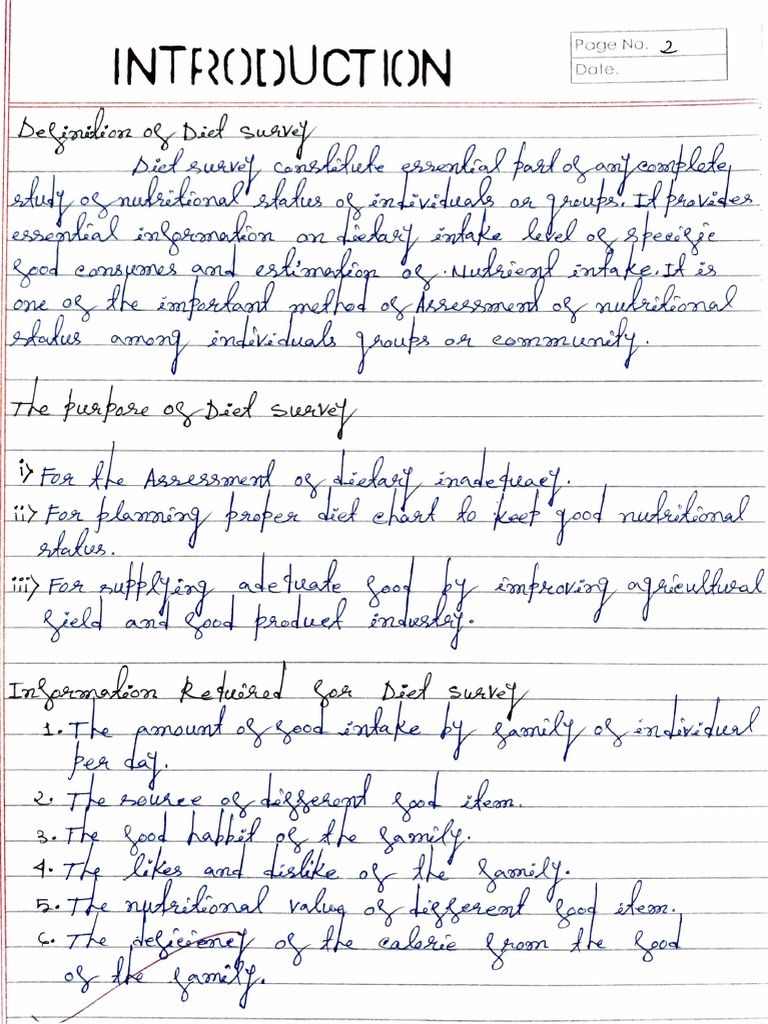 Page No. 2
INTRODUCTION
Date.
Definition of Diet survey
Diet survey constitute essential part of any complete
study of nutritional status of individuals or groups. It provides
essential information on dietary intake level of specific
food consumes and estimation of Nutrient intake. It is
one of the important method of Assessment of nutritional
status among individuals groups or community.
The purpose of Diet survey
i) For the Assessment of dietary inadequacy.
ii) For planning proper diet chart to keep good nutritional
status.
iii) For supplying adequate food by improving agricultural
field and food product industry.
Information Required for Diet survey
1. The amount of food intake by family of individual
per day.
2. The source of different food item.
3. The food habbit of the family.
4. The likes and dislike of the family.
5. The nutritional value of different food item.
6. The deficiency of the calorie from the food
of the family.